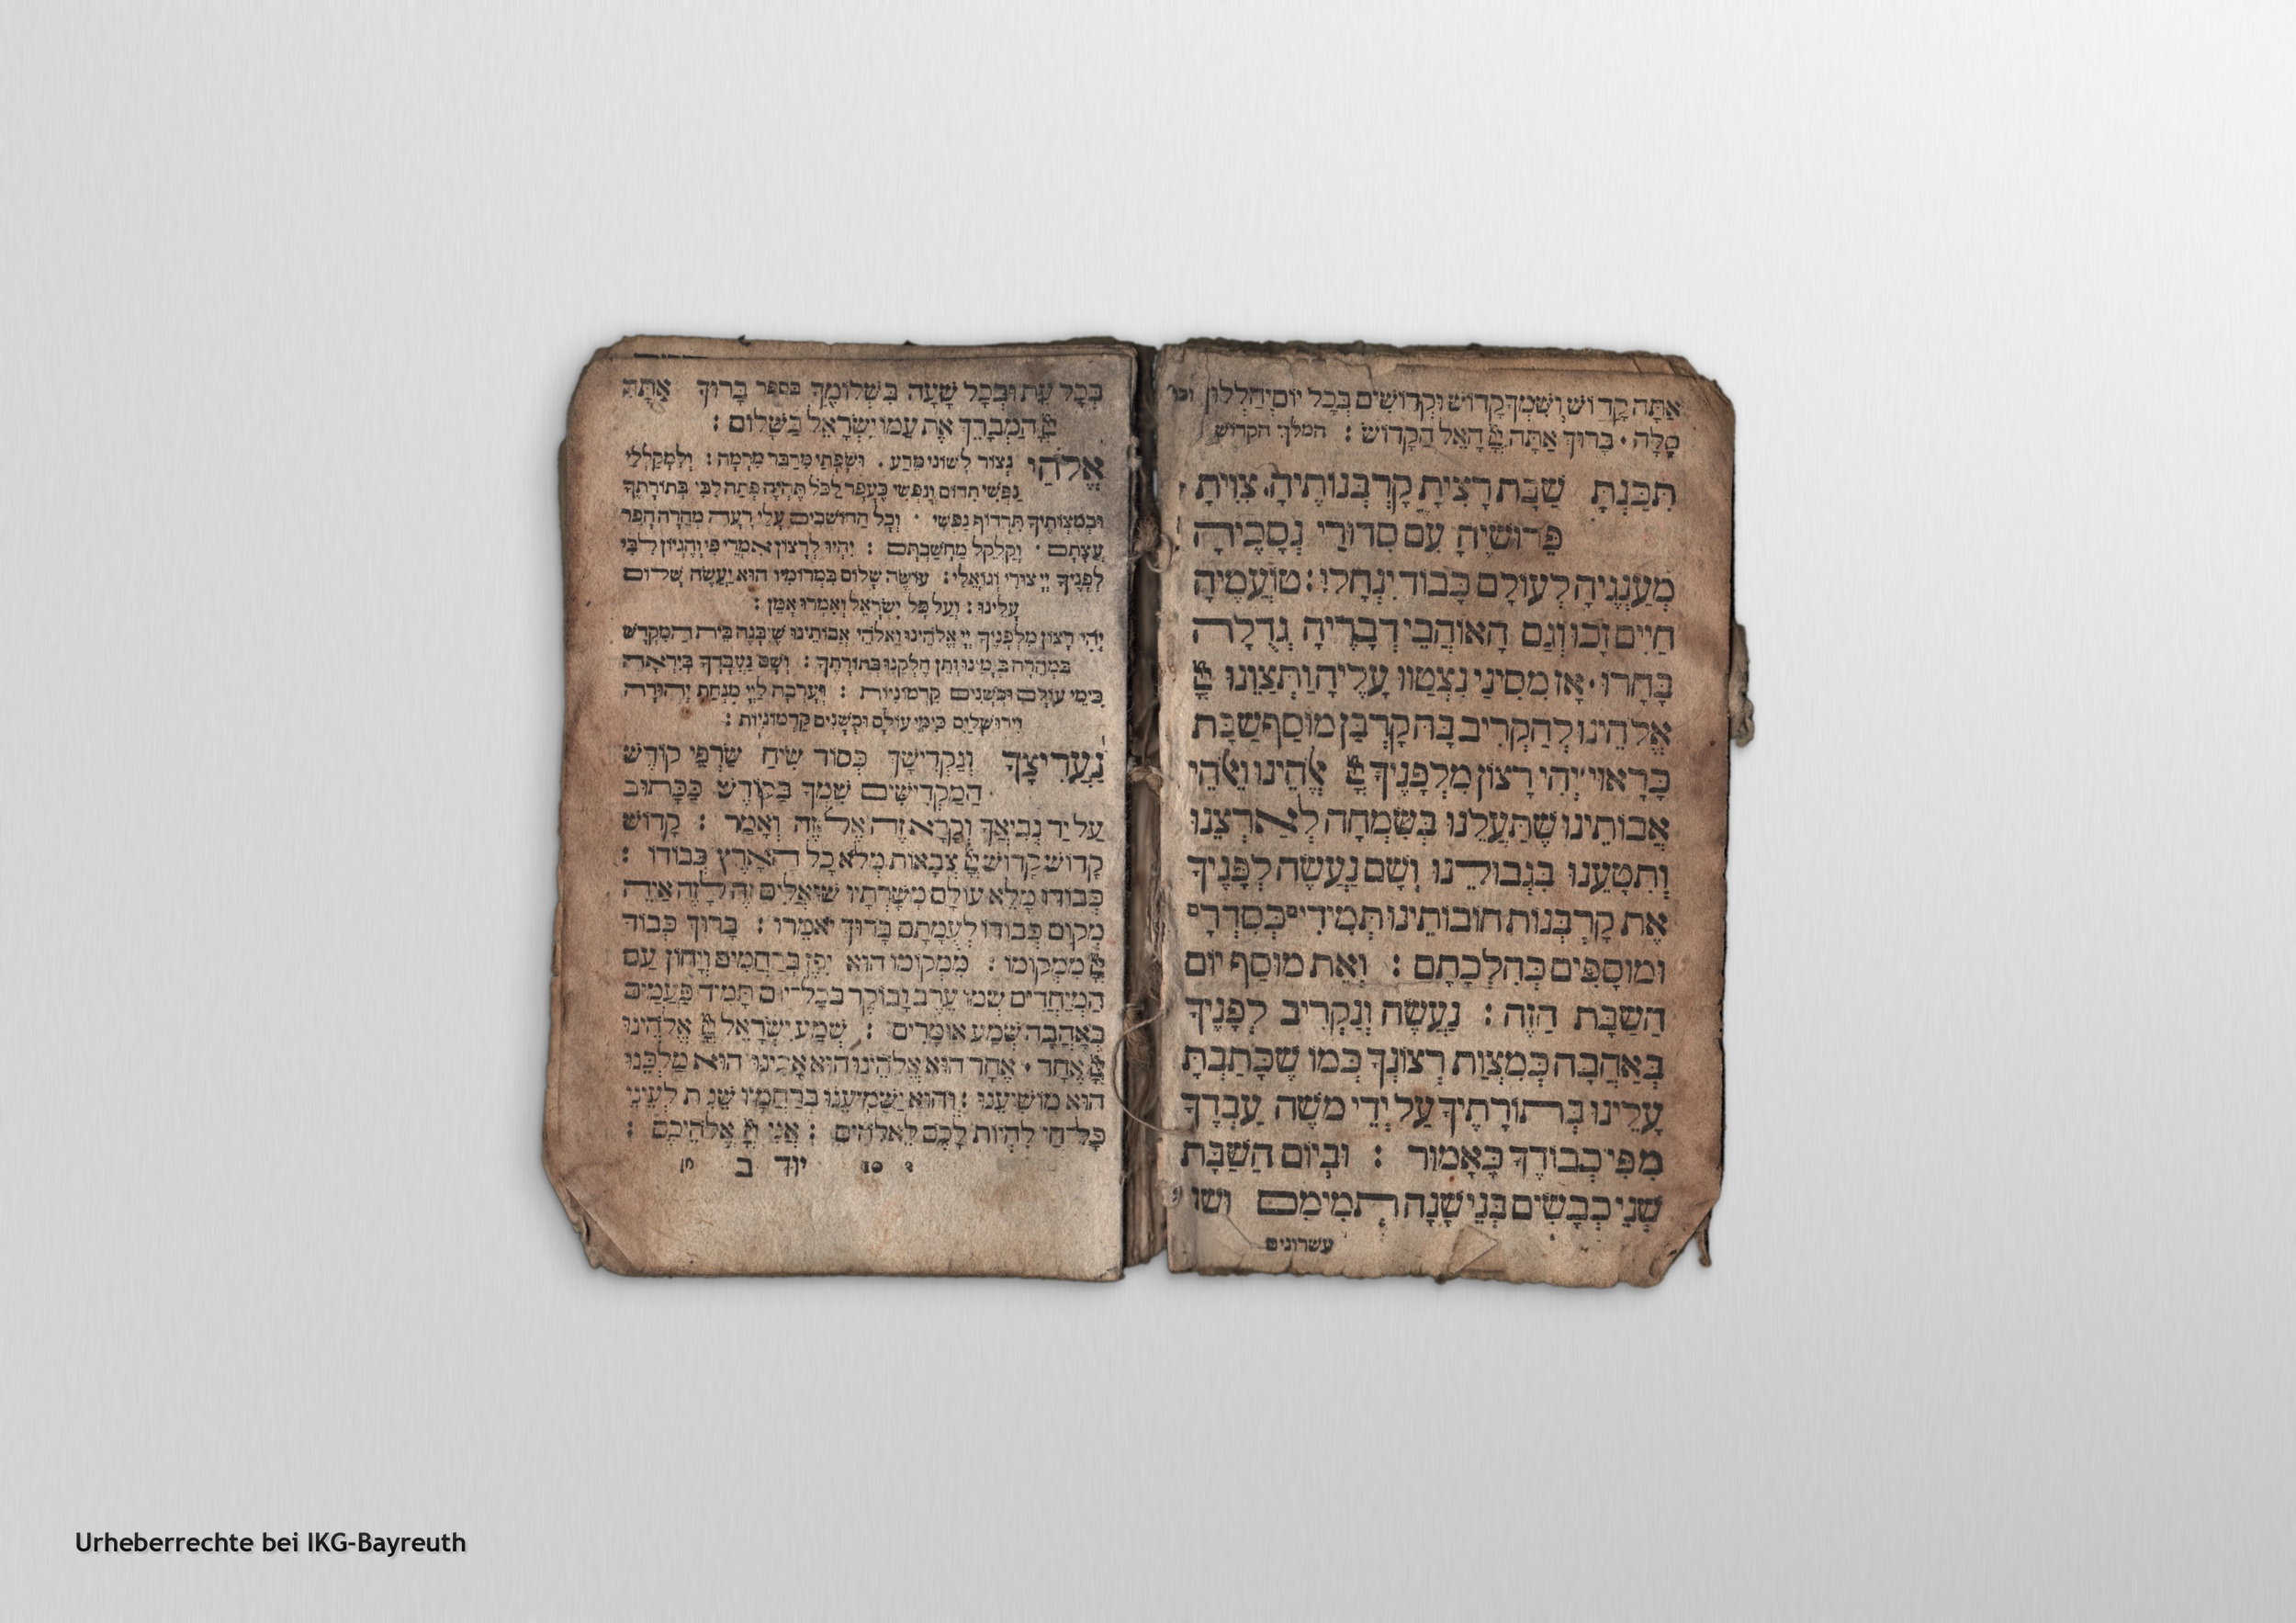 אַתָּה קָדוֹשׁ וְשִׁמְךָ קָדוֹשׁ וּקְדוֹשִׁים בְּכָל יוֹם יְהַלְלוּךָ וכו'
סֶּלָה · בָּרוּךְ אַתָּה יְיָ הָאֵל הַקָדוֹשׁ : המלך הקדוש
תִּכַּנְתָּ שַׁבָּת רָצִיתָ קָרְבְּנוֹתֶיהָ, צִוִּיתָ
פֵּרוּשֶׁיהָ עִם סִדּוּרֵי נְסָכֶיהָ
מְעַנְּגֶיהָ לְעוֹלָם כָּבוֹד יִנְחָלוּ : טוֹעֲמֶיהָ
חַיִּים זָכוּ וְגַם הָאוֹהֲבֵי דְבָרֶיהָ גְּדֻלָּה
בָּחָרוּ · אָז מִסִּינַי נִצְטַווּ עָלֶיהָ וַתְּצַוֵּנוּ יְיָ
אֱלֹהֵינוּ לְהַקְרִיב בָּהּ קָרְבַּן מוּסַף שַׁבָּת
כָּרָאוּי יְהִי רָצוֹן מִלְּפָנֶיךָ יְיָ אֱלֹהֵינוּ וֵאלֹהֵי
אֲבוֹתֵינוּ שֶׁתַּעֲלֵנוּ בְשִׂמְחָה לְאַרְצֵנוּ
וְתִטָּעֵנוּ בִּגְבוּלֵינוּ וְשָׁם נַעֲשֶׂה לְפָנֶיךָ
אֶת קָרְבְּנוֹת חוֹבוֹתֵינוּ תְּמִידִים כְּסִדְרָם
וּמוּסָפִים כְּהִלְכָתָם : וְאֶת מוּסַף יוֹם
הַשַּׁבָּת הַזֶּה : נַעֲשֶׂה וְנַקְרִיב לְפָנֶיךָ
בְּאַהֲבָה כְּמִצְוַת רְצוֹנְךָ כְּמוֹ שֶׁכָּתַבְתָּ
עָלֵינוּ בְּתוֹרָתֶיךָ עַל יְדֵי מֹשֶׁה עַבְדָּךְ
מִפִּי כְבוֹדֶךָ כָּאָמוּר : וּבְיוֹם הַשַּׁבָּת
שְׁנֵי כְבָשִׂים בְּנֵי שָׁנָה תְּמִימִם ושני
עשרונים
בְּכָל עֵת וּבְכָל שָׁעָה בִּשְׁלוֹמֶךָ בספר בָּרוּךְ אַתָּה
יְיָ הַמְבָרֵךְ אֶת עַמּוֹ יִשְׂרָאֵל בַּשָּׁלוֹם :
אֱלֹהַי נְצוֹר לְשׁוֹנִי מֵרַע . וּשְׂפָתַי מִדַּבֵּר מִרְמָה : וְלִמְקַלְלַי
נַפְשִׁי תִדּוֹם וְנַפְשִׁי כֶּעָפָר לַכֹּל תְּהִיֶה פְּתַח לִבִּי בְּתוֹרָתֶךָ
וּבְמִצְוֹתֶיךָ תִּרְדּוֹף נַפְשִׁי · וְכָל הַחוֹשְׁבִים עָלַי רָעָה מְהֵרָה הָפֵר
עֲצָתָם · וְקַלְקֵל מַחֲשַׁבְתָּם : יִהְיוּ לְרָצוֹן אִמְרֵי פִי וְהֶגְיוֹן לִבִּי
לְפָנֶיךָ יְיָ צוּרִי וְגוֹאֲלִי : עוֹשֶׂה שָׁלוֹם בִּמְרוֹמָיו הוּא יַעֲשֶׂה שָׁלוֹם
עָלֵינוּ : וְעַל כָּל יִשְׂרָאֵל וְאִמְרוּ אָמֵן :
יְהִי רָצוֹן מִלְּפָנֶיךָ יְיָ אֱלֹהֵינוּ וֵאלֹהֵי אֲבוֹתֵינוּ שֶׁיִּבָּנֶה בֵּית הַמִּקְדָּשׁ
בִּמְהֵרָה בְּיָמֵינוּ וְתֵן חֶלְקֵנוּ בְּתוֹרָתֶךָ : וְשָׁם נַעֲבָדְךָ בְּיִרְאָה
כִּימֵי עוֹלָם וּכְשָׁנִים קַדְמוֹנִיּוֹת : וְעָרְבָה לַיְיָ מִנְחַת יְהוּדָה
וִירוּשָׁלַיִם כִּימֵי עוֹלָם וּכְשָׁנִים קַדְמוֹנִיּוֹת :
נַעֲרִיצָךְ וְנַקְדִישָׁךְ כְּסוֹד שִׂיחַ שַׂרְפֵי קוֹדֶשׁ
הַמַּקְדִישִׁים שִׁמְךָ בַּקּוֹדֶשׁ כַּכָּתוּב
עַל יַד נְבִיאֶךָ וְקָרָא זֶה אֶל זֶה וְאָמַר : קָדוֹשׁ
קָדוֹשׁ קָדוֹשׁ יְיָ צְבָאוֹת מְלֹא כָל הָאָרֶץ כְּבוֹדוֹ :
כְּבוֹדוֹ מָלֵא עוֹלָם מְשָׁרְתָיו שׁוֹאֲלִים זֶה לָזֶה אַיֵּה
מְקוֹם כְּבוֹדוֹ לְעֻמָּתָם בָּרוּךְ יֹאמֵרוּ : בָּרוּךְ כְּבוֹד
יְיָ מִמְּקוֹמוֹ : מִמְּקוֹמוֹ הוּא יִפֶן בְּרַחֲמִים וְיָחוֹן עַם
הַמְיַחֲדִים שְׁמוֹ עֶרֶב וָבוֹקֶר בְּכָל יוֹם תָּמִיד פַּעֲמַיִם
בְּאַהֲבָה שְׁמַע אוֹמְרִים : שְׁמַע יִשְׂרָאֵל יְיָ אֱלֹהֵינוּ
יְיָ אֶחָד · אֶחָד הוּא אֱלֹהֵינוּ הוּא אָבִינוּ הוּא מַלְכֵּנוּ
הוּא מוֹשִׁיעֵנוּ : וְהוּא יַשְׁמִיעֵנוּ בְּרַחֲמָיו שֵׁנִית לְעֵינֵי
כָּל חַי לִהְיוֹת לָכֶם לֵאלֹהִים : אֲנִי יְיָ אֱלֹהֵיכֶם :
יוד ב
Urheberrechte bei IKG-Bayreuth